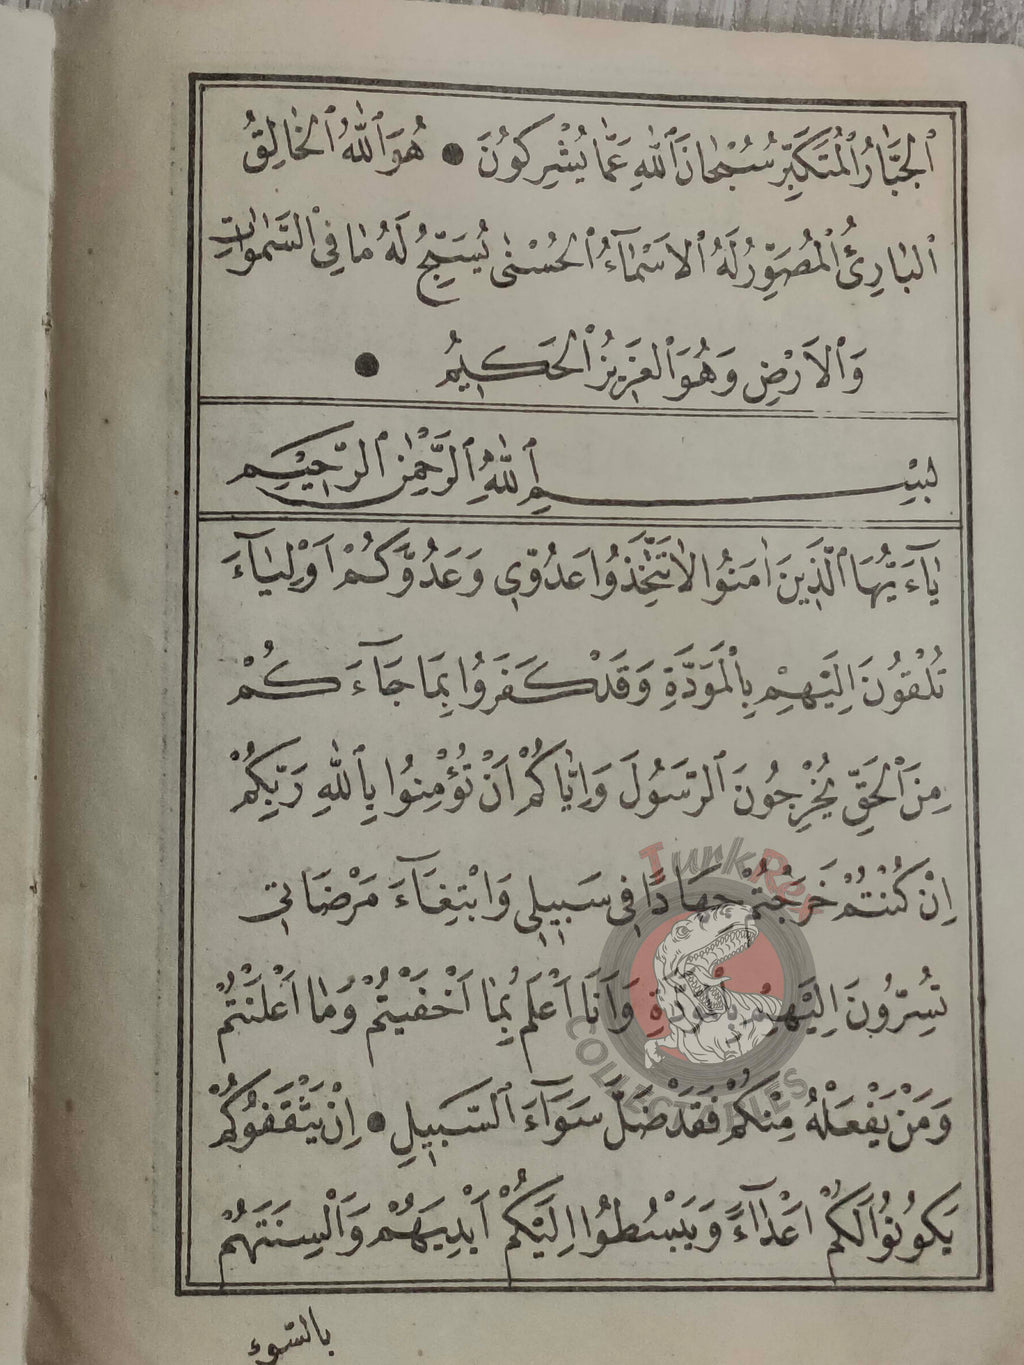 ٱلْجَبَّارُ ٱلْمُتَكَبِّرُ سُبْحَانَ ٱللّٰهِ عَمَّا يُشْرِكُونَ ● هُوَ ٱللّٰهُ ٱلْخَالِقُ
ٱلْبَارِئُ ٱلْمُصَوِّرُ لَهُ ٱلْاَسْمَآءُ ٱلْحُسْنٰى يُسَبِّحُ لَهُ مَا فِي ٱلسَّمٰوَاتِ
وَٱلْاَرْضِ وَهُوَ ٱلْعَزِيزُ ٱلْحَكِيمُ ●
بِسْمِ ٱللّٰهِ ٱلرَّحْمٰنِ ٱلرَّحِيْمِ
يَآءَيُّهَا ٱلَّذِينَ اٰمَنُوا لَا تَتَّخِذُوا عَدُوِّي وَعَدُوَّكُمْ اَوْلِيَآءَ
تُلْقُونَ اِلَيْهِمْ بِٱلْمَوَدَّةِ وَقَدْ كَفَرُوا بِمَا جَآءَكُمْ
مِنَ ٱلْحَقِّ يُخْرِجُونَ ٱلرَّسُولَ وَاِيَّاكُمْ اَنْ تُؤْمِنُوا بِٱللّٰهِ رَبِّكُمْ
اِنْ كُنْتُمْ خَرَجْتُمْ جِهَادًا فِي سَبِيلِي وَابْتِغَآءَ مَرْضَاتِي
تُسِرُّونَ اِلَيْهِمْ بِٱلْمَوَدَّةِ وَاَنَا اَعْلَمُ بِمَا اَخْفَيْتُمْ وَمَا اَعْلَنْتُمْ
وَمَنْ يَفْعَلْهُ مِنْكُمْ فَقَدْ ضَلَّ سَوَآءَ ٱلسَّبِيلِ ● اِنْ يَثْقَفُوكُمْ
يَكُونُوا لَكُمْ اَعْدَآءً وَيَبْسُطُوا اِلَيْكُمْ اَيْدِيَهُمْ وَاَلْسِنَتَهُمْ
بالسّوء
TurkRex
COLLECTIBLES